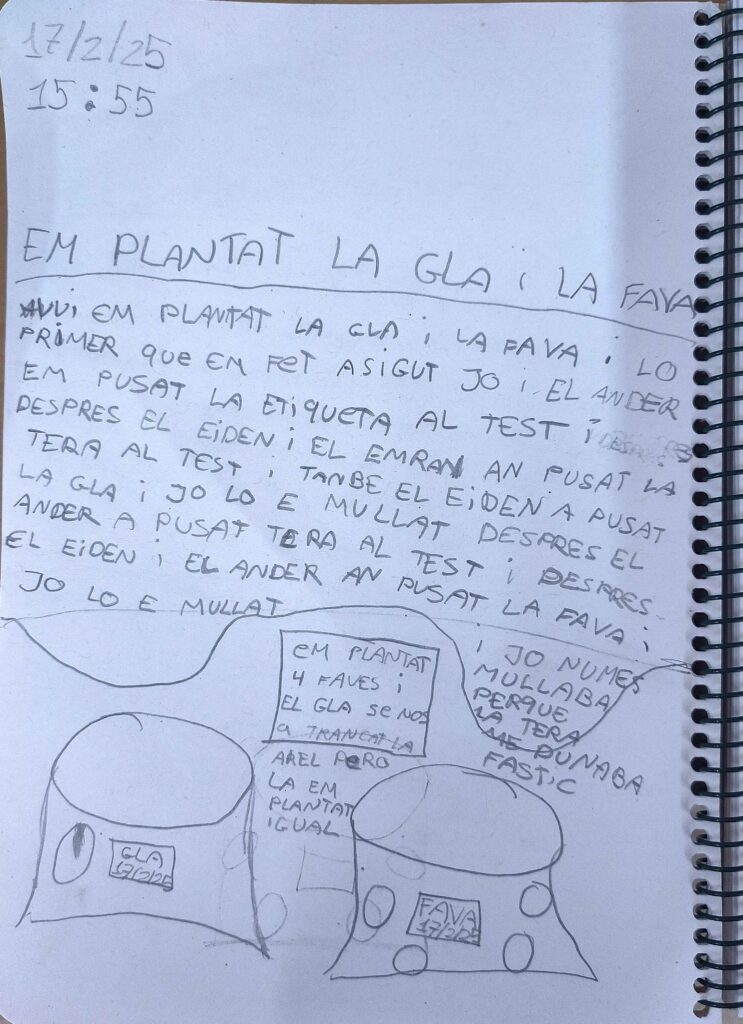 17/2/25
15:55
EM PLANTAT LA GLA i LA FAVA
AVUi EM PLANTAT LA GLA i LA FAVA i LO
PRIMER QUE EM FET A SIGUT JO i EL ANDER
EM PUSAT LA ETIQUETA AL TEST i
DESPRES EL EiDEN i EL EMRAN AN PUSAT LA
TERA AL TEST i TANBE EL EiDEN A PUSAT
LA GLA i JO LO E MULLAT DESPRES EL
ANDER A PUSAT TERA AL TEST i DESPRES
EL EiDEN i EL ANDER AN PUSAT LA FAVA i
JO LO E MULLAT
i JO NUMES
MULLABA
PERQUE
LA TERA
ME DUNABA
FASTIC
EM PLANTAT
4 FAVES i
EL GLA SE NOS
a TRANCAT LA
AREL PERO
LA EM
PLANTAT
IGUAL
GLA
17/2/25
FAVA
17/2/25